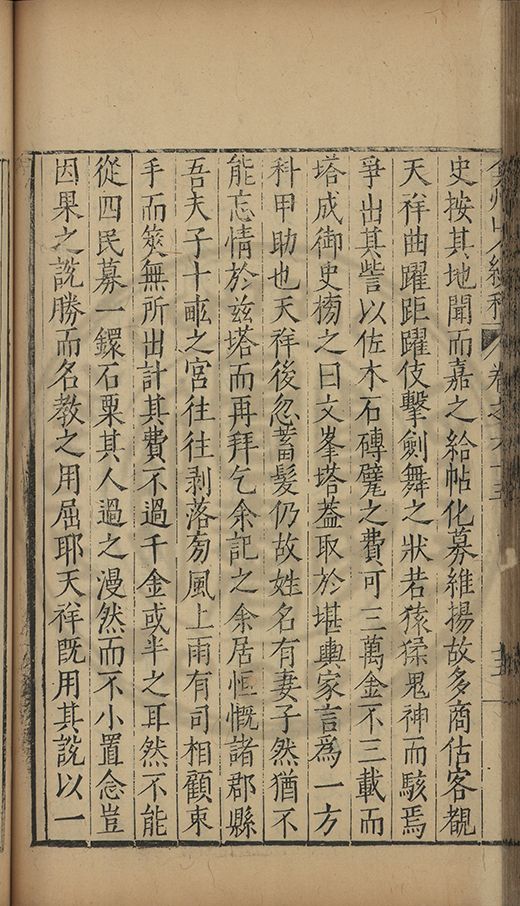 弇州山人續稿 卷之六十五 十五
史按其地聞而嘉之給帖化募維揚故多商估客覩
天祥曲躍距躍伎擊劍舞之狀若猿猱鬼神而駭焉
爭出其訾以佐木石磚甓之費可三萬金不三載而
塔成御史榜之曰文峯塔葢取於堪輿家言爲一方
科甲助也天祥後忽蓄髮仍故姓名有妻子然猶不
能忘情於兹塔而再拜乞余記之余居恒慨諸郡縣
吾夫子十畞之宮往往剥落旁風上雨有司相顧束
手而筴無所出計其費不過千金或半之耳然不能
從四民募一鐶石粟其人過之漫然而不小置念豈
因果之說勝而名教之用屈耶天祥旣用其說以一